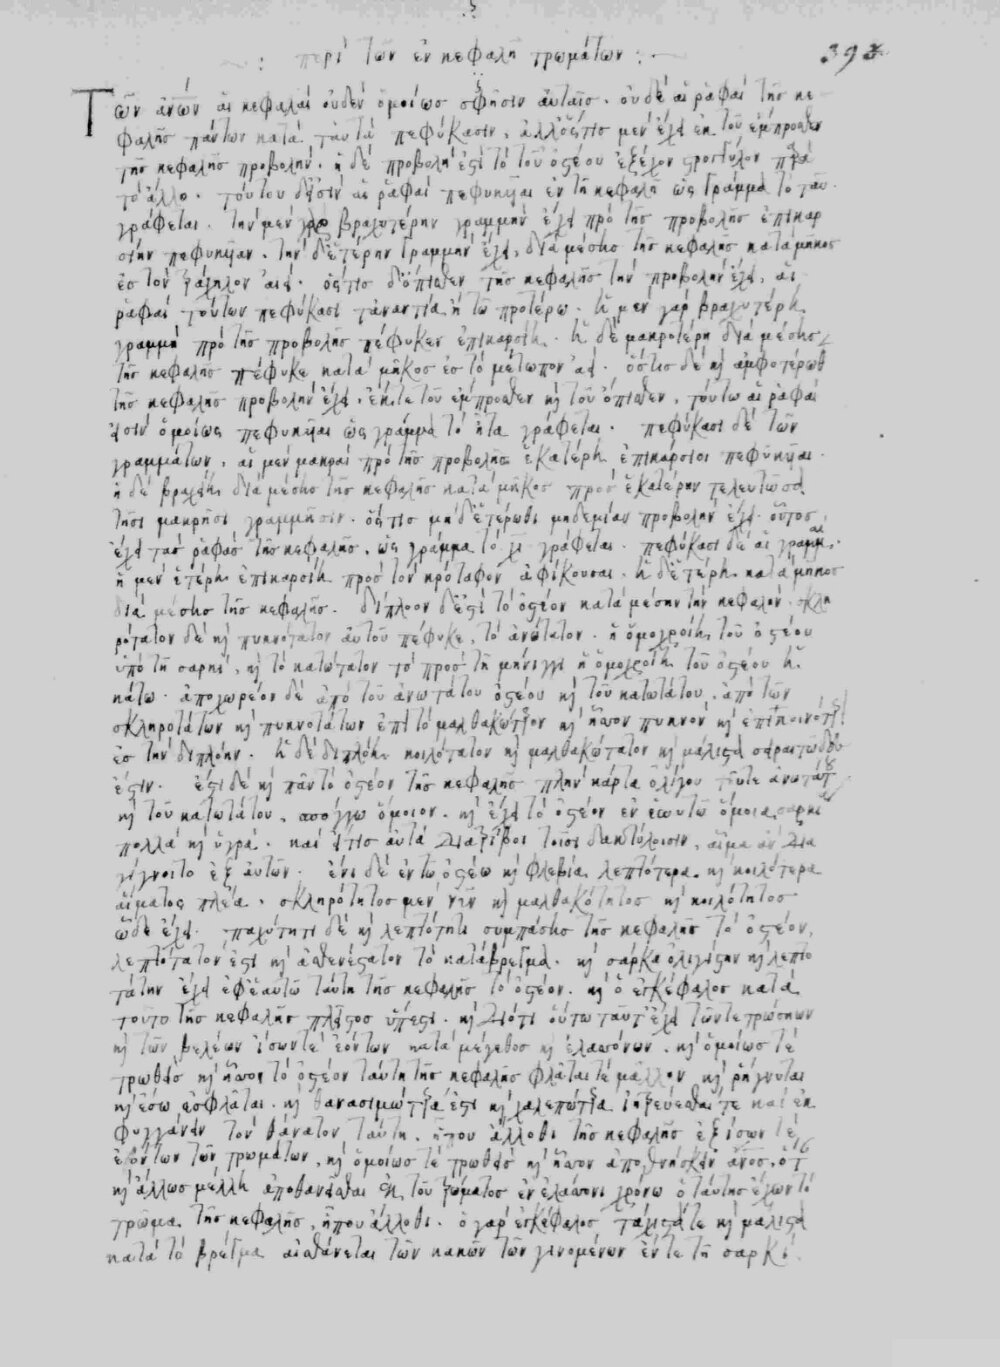 περὶ τῶν ἐν κεφαλῇ τρωμάτων 393
Τῶν ἀνῶν αἱ κεφαλαὶ οὐδὲν ὁμοίωσ σφῆσιν αὐταῖσ. οὐδὲ αἱ ῥαφαὶ τῆσ κε
φαλῆσ πάντων κατὰ ταὐτὰ πεφύκασιν. ἀλλ' ὅστισ μὲν ἔχει ἐκ τοῦ ἔμπροσθεν
τῆσ κεφαλῆσ προβολήν. ἡ δὲ προβολή ἐστι τὸ τοῦ ὀστέου ἐξέχον στρογγύλον παρὰ
τὸ ἄλλο. τούτου εἰσὶν αἱ ῥαφαὶ πεφυκυῖαι ἐν τῇ κεφαλῇ ὡς γράμμα τὸ ταῦ
γράφεται. τὴν μὲν γὰρ βραχυτέρην γραμμὴν ἔχει πρὸ τῆσ προβολῆσ ἐπικαρ
σίην πεφυκυῖαν. τὴν δ' ἑτέρην γραμμὴν ἔχει, διὰ μέσησ τῆσ κεφαλῆσ κατὰ μῆκοσ
ἐσ τὸν τράχηλον αἰεί. ὅστισ δ' ὄπισθεν τῆσ κεφαλῆσ τὴν προβολὴν ἔχει, αἱ
ῥαφαὶ τούτων πεφύκασι τἀναντία ἢ τῷ προτέρῳ. ἡ μὲν γὰρ βραχυτέρη
γραμμὴ πρὸ τῆσ προβολῆσ πέφυκεν ἐπικαρσίη. ἡ δὲ μακροτέρη διὰ μέσησ
τῆσ κεφαλῆσ πέφυκε κατὰ μῆκοσ ἐσ τὸ μέτωπον αἰεί. ὅστισ δὲ κỳ ἀμφοτέρωθι
τῆσ κεφαλῆσ προβολὴν ἔχει. ἔκ τε τοῦ ἔμπροσθεν κỳ τοῦ ὄπισθεν, τούτῳ αἱ ῥαφαί
εἰσιν ὁμοίως πεφυκυῖαι ὡς γράμμα τὸ ἦτα γράφεται. πεφύκασι δὲ τῶν
γραμμάτων, αἱ μὲν μακραὶ πρὸ τῆσ προβολῆσ ἑκατέρη ἐπικάρσιοι πεφυκυῖαι.
ἡ δὲ βραχείη διὰ μέσησ τῆσ κεφαλῆσ κατὰ μῆκοσ πρὸσ ἑκατέρην τελευτῶσα
τῆσι μακρῆσι γραμμῆσιν. ὅστισ μηδ' ἑτέρωθι μηδεμίαν προβολὴν ἔχει οὗτοσ
ἔχει τὰσ ῥαφὰσ τῆσ κεφαλῆσ. ὡς γράμμα τὸ χῖ γράφεται. πεφύκασι δὲ αἱ γραμμαί.
ἡ μὲν ἑτέρη ἐπικαρσίη πρὸσ τὸν κρόταφον ἀφίκουσαι. ἡ δ' ἑτέρη κατὰ μῆκοσ
διὰ μέσησ τῆσ κεφαλῆσ. δίπλοον δ' ἐστὶ τὸ ὀστέον κατὰ μέσην τὴν κεφαλήν. σκλη
ρότατον δὲ κỳ πυκνότατον αὐτοῦ πέφυκε, τὸ ἀνώτατον. ἡ ὁμοχροίη τοῦ ὀστέου
ὑπὸ τῇ σαρκὶ, κỳ τὸ κατώτατον τὸ πρὸσ τῇ μήνιγγι ἡ ὁμοχροίη τοῦ ὀστέου ἡ
κάτω. ἀποχωρέον δὲ ἀπὸ τοῦ ἀνωτάτου ὀστέου κỳ τοῦ κατωτάτου, ἀπὸ τῶν
σκληροτάτων κỳ πυκνοτάτων ἐπὶ τὸ μαλθακώτερον κỳ ἧσσον πυκνὸν κỳ ἐπικοινότερον
ἐσ τὴν διπλόην. ἡ δὲ διπλόη κοιλότατον κỳ μαλθακώτατον κỳ μάλιστα σηραγγῶδές
ἐστιν. ἔστι δὲ κỳ πᾶν τὸ ὀστέον τῆσ κεφαλῆσ πλὴν κάρτα ὀλίγου τοῦ τε ἀνωτάτου
κỳ τοῦ κατωτάτου, σπόγγῳ ὅμοιον. κỳ ἔχει τὸ ὀστέον ἐν ἑωυτῷ ὅμοια σαρκία
πολλὰ κỳ ὑγρά. καὶ εἴ τισ αὐτὰ διατρίβοι τοῖσι δακτύλοισιν, αἷμα ἂν δια
γίγνοιτο ἐξ αὐτῶν. ἔνι δὲ ἐν τῷ ὀστέῳ κỳ φλεβία λεπτότερα κỳ κοιλότερα
αἵματος πλέα. σκληρότητοσ μὲν νῦν κỳ μαλθακότητοσ κỳ κοιλότητοσ
ὧδε ἔχει. παχύτητι δὲ κỳ λεπτότητι συμπάσησ τῆσ κεφαλῆσ τὸ ὀστέον,
λεπτότατόν ἐστι κỳ ἀσθενέστατον τὸ κατὰ βρέγμα. κỳ σάρκα ὀλιγίστην κỳ λεπτο
τάτην ἔχει ἐφ' ἑαυτῷ ταύτῃ τῆσ κεφαλῆσ τὸ ὀστέον. κỳ ὁ ἐγκέφαλοσ κατὰ
τοῦτο τῆσ κεφαλῆσ πλεῖστοσ ὕπεστι. κỳ διότι οὕτω ταῦτ' ἔχει τῶν τε τρώσεων
κỳ τῶν βελέων ἴσων τὲ ἐόντων κατὰ μέγεθοσ κỳ ἐλασσόνων. κỳ ὁμοίωσ τὲ
τρωθεὶσ κỳ ἧσσον τὸ ὀστέον ταύτῃ τῆσ κεφαλῆσ φλᾶται τὲ μᾶλλον κỳ ῥήγνυται
κỳ ἔσω ἐσφλᾶται. κỳ θανασιμώτερά ἐστι κỳ χαλεπώτερα ἰητρεύεσθαί τε καὶ ἐκ
φυγγάνειν τὸν θάνατον ταύτῃ. ἤπου ἄλλοθι τῆσ κεφαλῆσ ἐξ ἴσων τὲ
ἐόντων τῶν τρωμάτων, κỳ ὁμοίωσ τὲ τρωθεὶσ κỳ ἧσσον ἀποθνήσκει ἄνοσ, ὅτ'
κỳ ἄλλωσ μέλλῃ ἀποθανεῖσθαι ἐκ τοῦ τρώματοσ ἐν ἐλάσσονι χρόνῳ ὁ ταύτησ ἔχων τὸ
τρῶμα τῆσ κεφαλῆσ, ἤπου ἄλλοθι. ὁ γὰρ ἐγκέφαλοσ τάχιστά τε κỳ μάλιστα
κατὰ τὸ βρέγμα αἰσθάνεται τῶν κακῶν τῶν γινομένων ἔν τε τῇ σαρκί